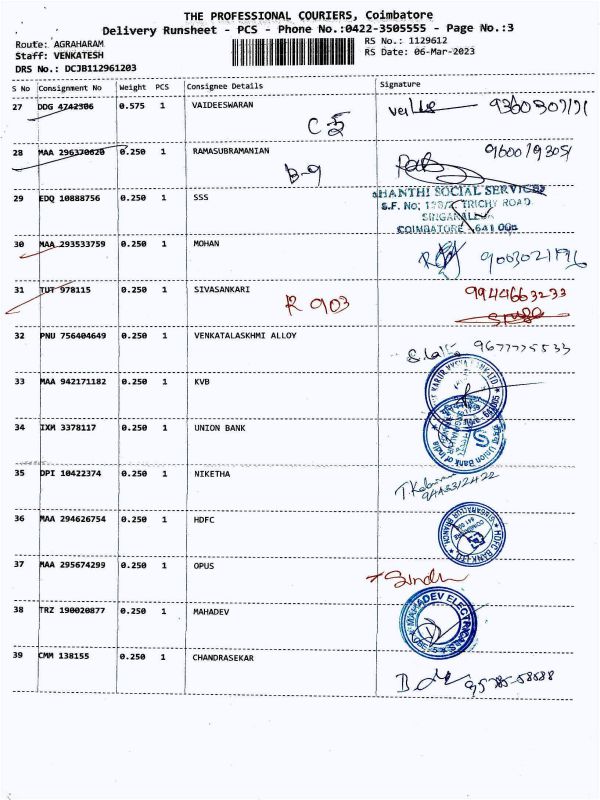 THE PROFESSIONAL COURIERS, Coimbatore
Delivery Runsheet - PCS - Phone No.:0422-3505555 - Page No.:3
Route: AGRAHARAM
RS No.: 1129612
Staff: VENKATESH
RS Date: 06-Mar-2023
DRS No.: DCJB112961203
S No Consignment No Weight PCS Consignee Details Signature
27 DDG 4742306 0.575 1 VAIDEESWARAN
C 5
28 MAA 296370620 0.250 1 RAMASUBRAMANIAN
B-9
29 EDQ 10888756 0.250 1 SSS
SHANTHI SOCIAL SERVICES
TRICHY ROAD
SINGANALLUR
COIMBATORE
30 MAA 293533759 0.250 1 MOHAN
31 TUT 978115 0.250 1 SIVASANKARI
R 903 9944663233
32 PNU 756404649 0.250 1 VENKATALASKHMI ALLOY
9677775533
33 MAA 942171182 0.250 1 KVB
34 IXM 3378117 0.250 1 UNION BANK
Union Bank of India
35 DPI 10422374 0.250 1 NIKETHA
36 MAA 294626754 0.250 1 HDFC
HDFC BANK LTD
37 MAA 295674299 0.250 1 OPUS
Sindhu
38 TRZ 190020877 0.250 1 MAHADEV
MAHADEV ELECTRICALS
39 CMM 138155 0.250 1 CHANDRASEKAR